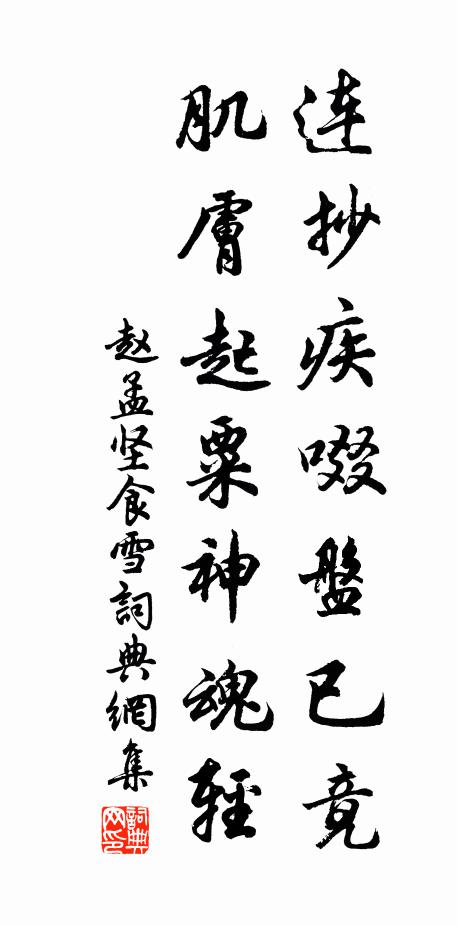 连抄疾啜盤已竟
肌膚起粟神魂輕
赵孟坚食雪詞典網集
詞典网印